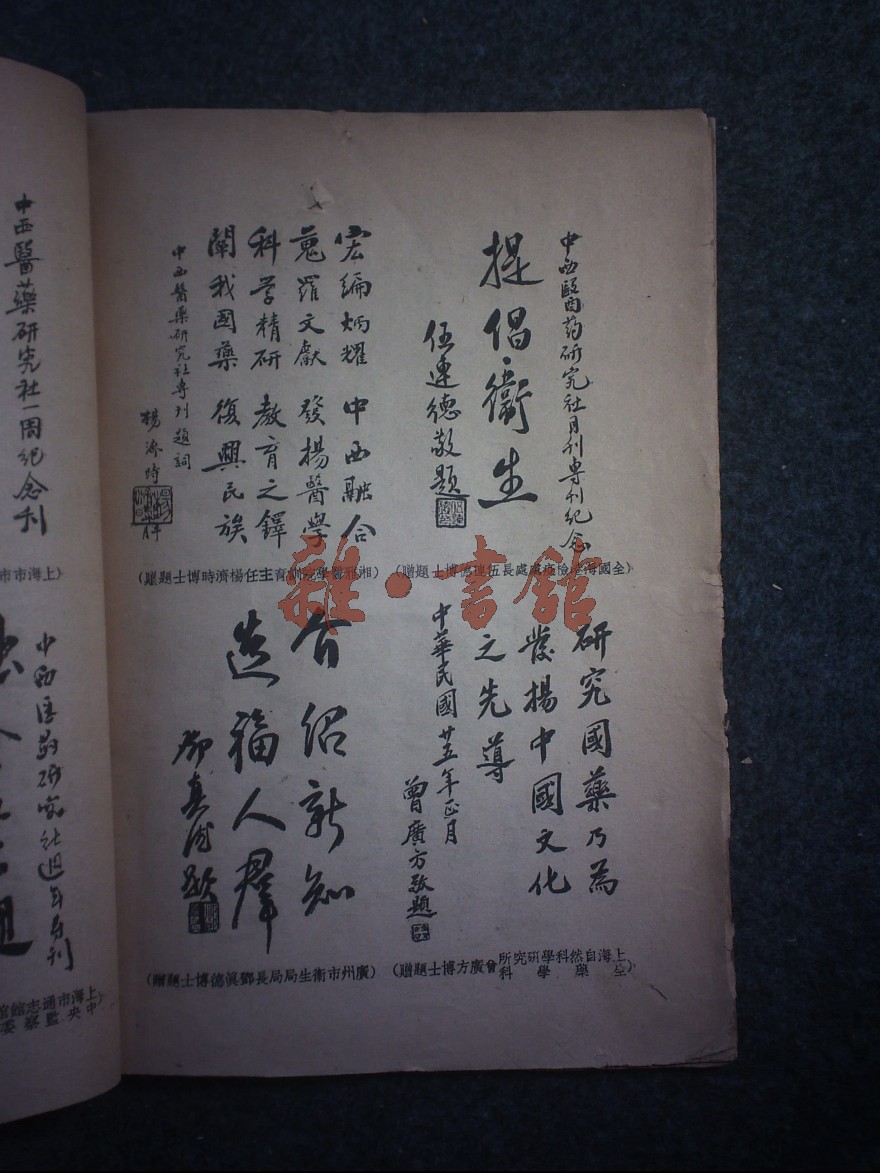 中西醫药研究社月刊專刊紀念
提倡衞生
伍連德敬題
(全國海港檢疫處處長伍連德博士題贈)
宏編炳耀 中西融合
蒐羅文獻 發揚醫學
科学精研 教育之鐸
闡我國藥 復興民族
中西醫藥研究社專刊題詞
楊濟時
(湘雅醫學院訓育主任楊濟時博士題贈)
研究國藥乃為
發揚中國文化
之先導
中華民國廿五年正月
曾廣方敬題
(上海自然科學研究所生藥學科曾廣方博士題贈)
介绍新知
造福人羣
鄧真德題
(廣州市衞生局局長鄧眞德博士題贈)
中西醫藥研究社一周紀念刊
(上海市市
中西医药研究社週年專刊
上海市通志館館
中央監察委
雜·書館